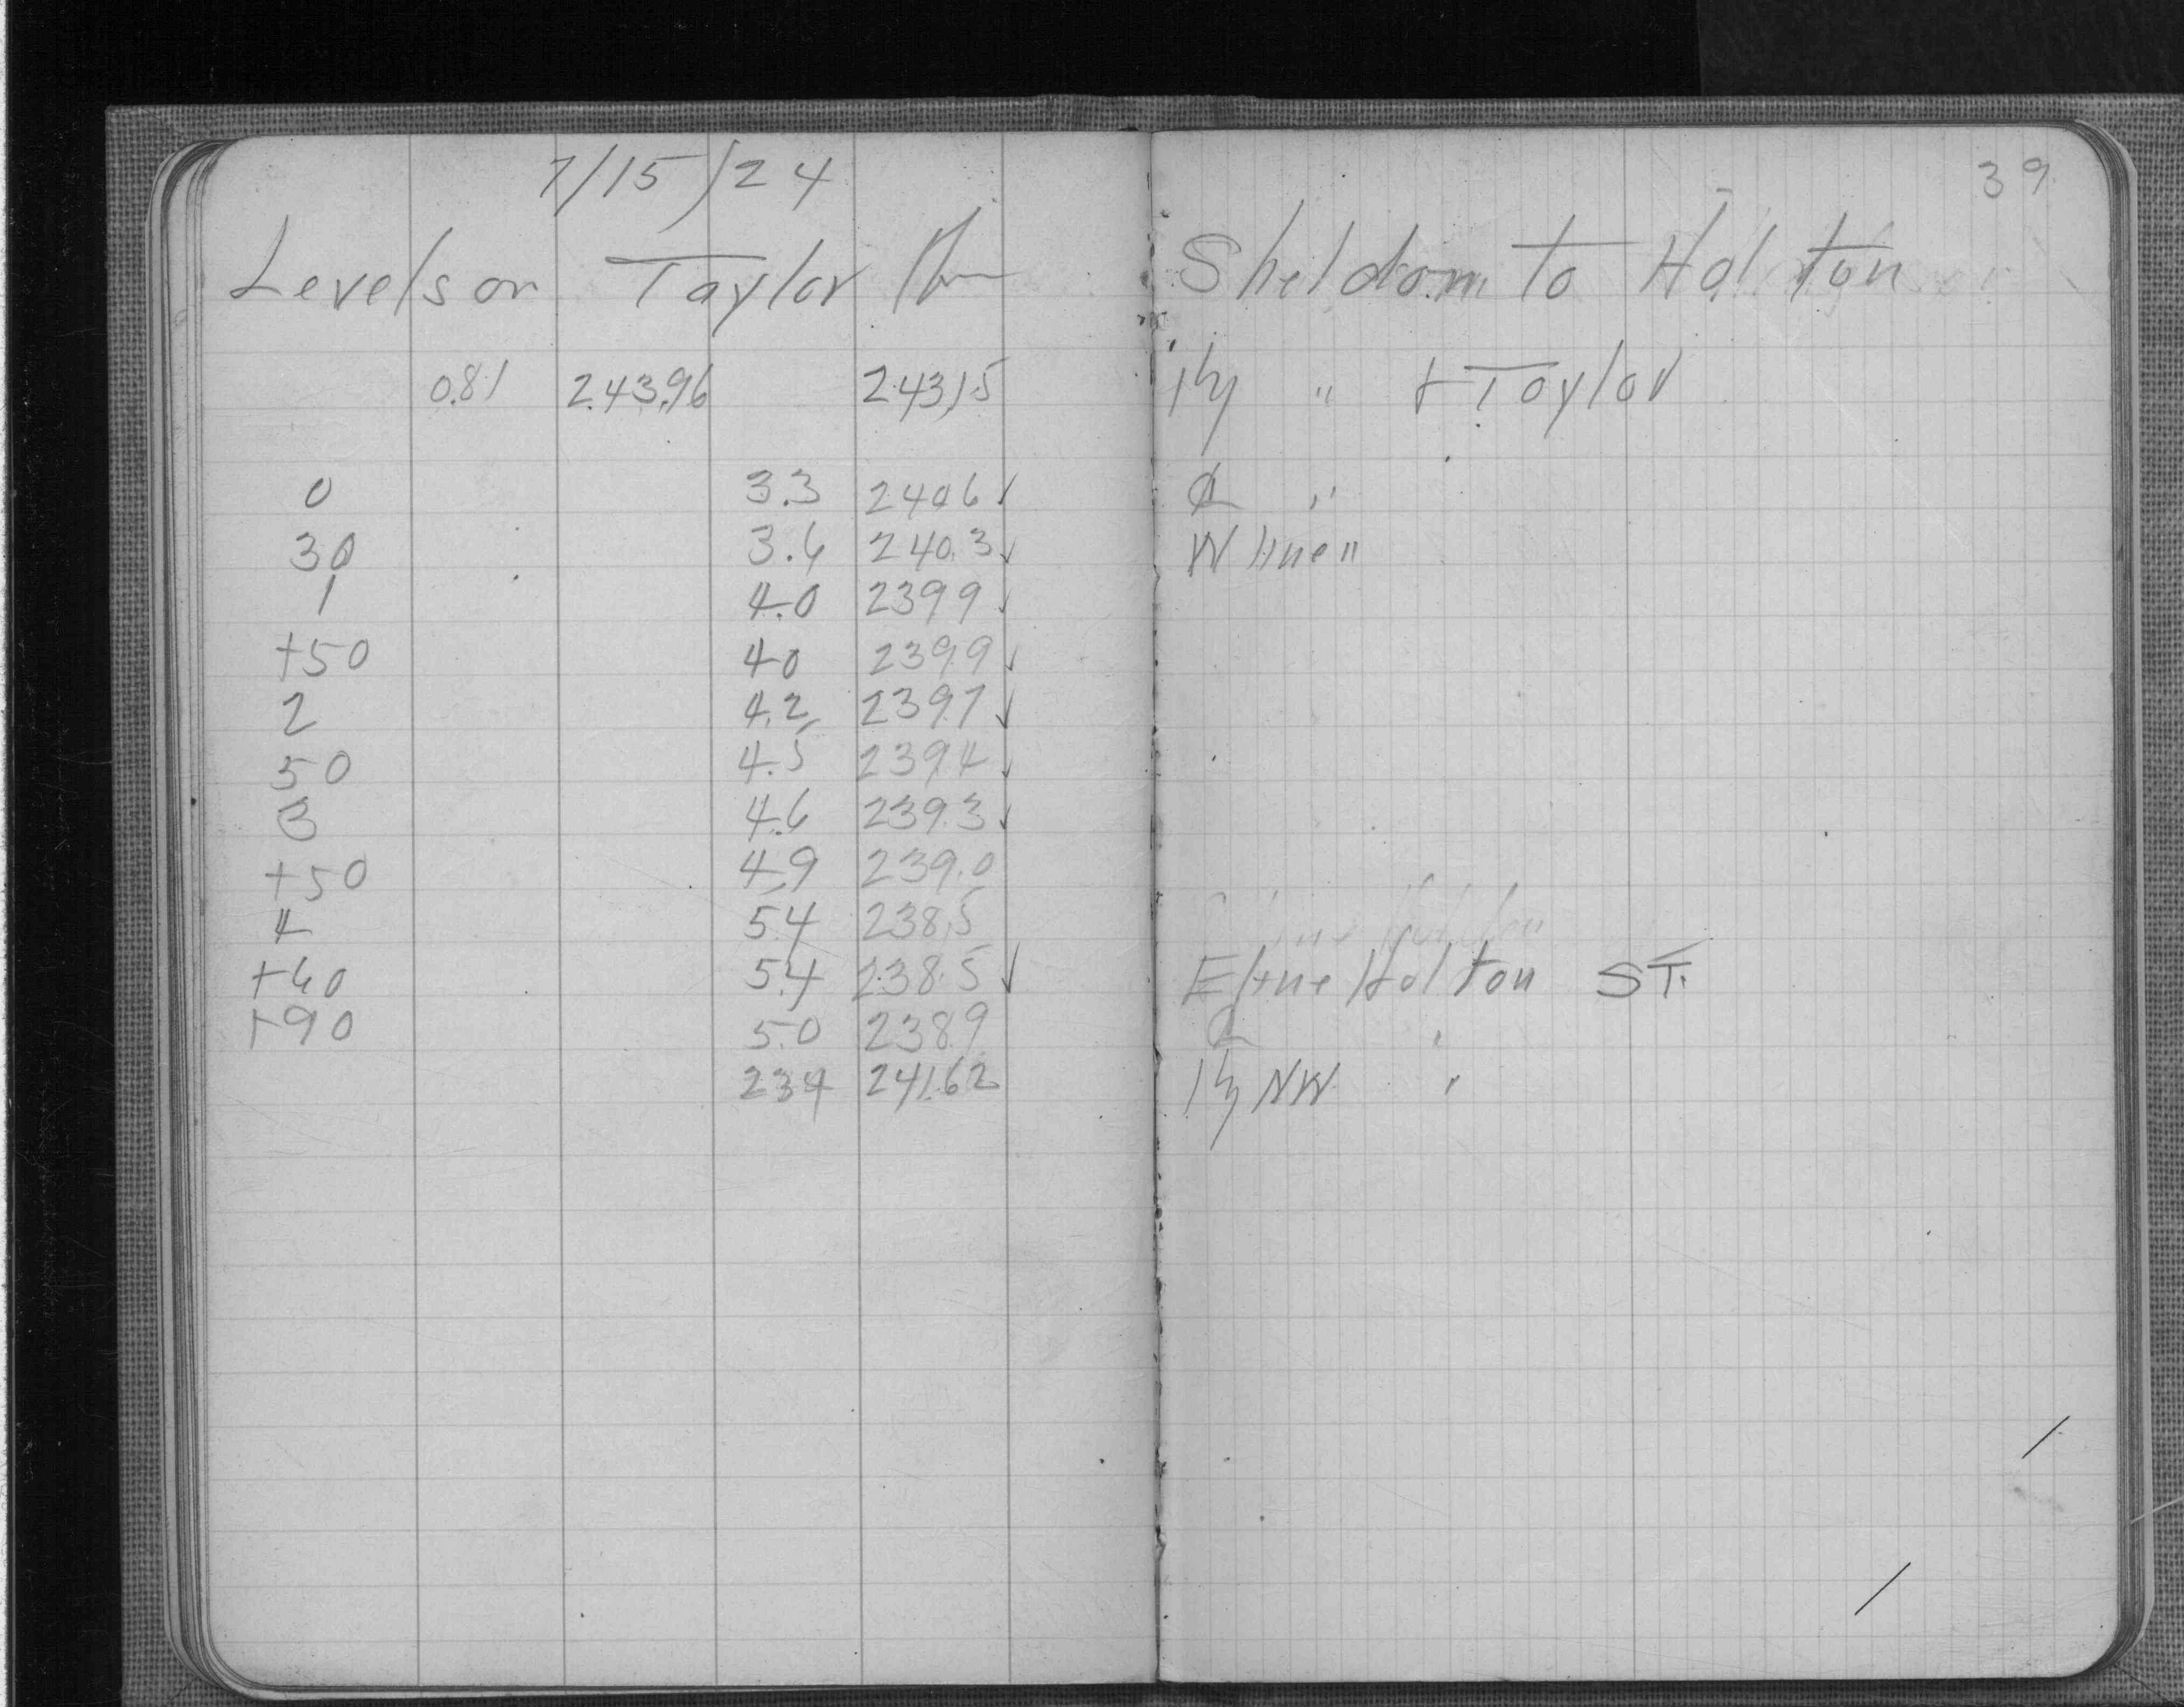 7/15/24
39
Levels on Taylor Ave Sheldon to Holton
0.81 243.96 243.15 Hy " + Taylor
0 3.3 240.6 ✓ ℄ "
30 3.6 240.3 ✓ W line "
1 4.0 239.9 ✓
+50 4.0 239.9 ✓
2 4.2 239.7 ✓
50 4.5 239.4 ✓
3 4.6 239.3 ✓
+50 4.9 239.0
4 5.4 238.5
+60 5.4 238.5 ✓ E line Holton ST.
+90 5.0 238.9 ℄ "
2.34 241.62 Hy NW "